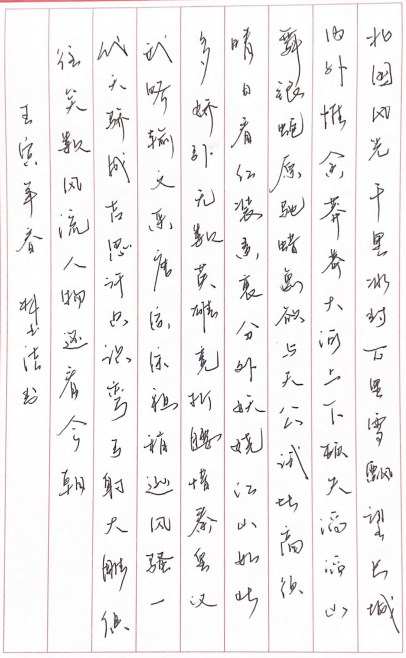 北国风光千里冰封万里雪飘望长城
内外惟余莽莽大河上下顿失滔滔山
舞银蛇原驰蜡象欲与天公试比高须
晴日看红装素裹分外妖娆江山如此
多娇引无数英雄竞折腰惜秦皇汉
武略输文采唐宗宋祖稍逊风骚一
代天骄成吉思汗只识弯弓射大雕俱
往矣数风流人物还看今朝
壬寅年春